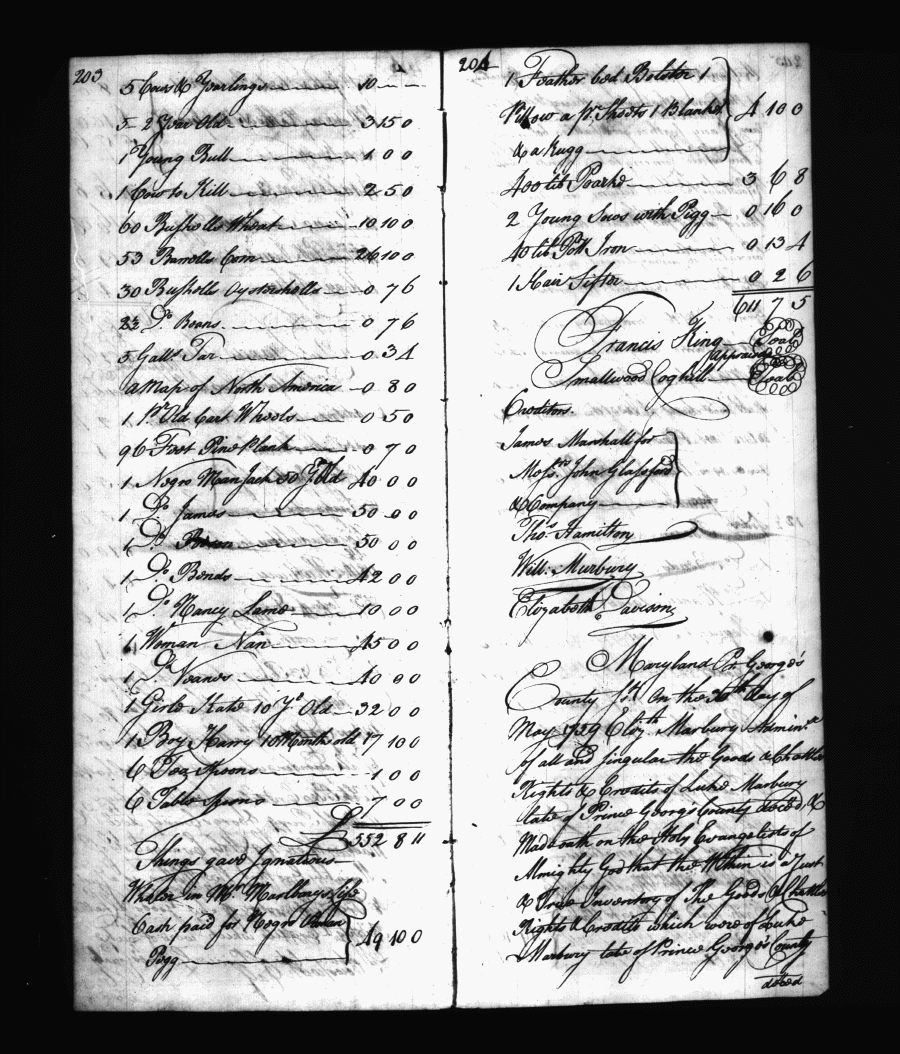 203
5 Cows & Yearlings 10 - -
5 - 2 Year Old 3 15 0
1 Young Bull 1 0 0
1 Cow to Kill 2 5 0
60 Bushells Wheat 10 10 0
53 Barrells Corn 26 10 0
30 Bushells Oystershells 0 7 6
Do Beans 0 7 6
5 Galls Tar 0 3 4
a Map of North America 0 8 0
1 pr Old Cart Wheels 0 5 0
96 Foot Pine Plank 0 7 0
1 Negro Man Jack 50 Y Old 40 0 0
1 Do James 50 0 0
1 Do 50 0 0
1 Do Bends 42 0 0
1 Do Nancy Lame 10 0 0
1 Woman Nan 45 0 0
1 Do 40 0 0
1 Girle Kate 10 Ys Old 32 0 0
1 Boy Harry 10 Months old 7 10 0
6 Tea Spoons 1 0 0
6 Table Spoons 7 0 0
£ 552 8 11
Things gave Ignatious
in Mr Life
Cash paid for Negro
Pegg 49 10 0
204
1 Feather bed Bolster 1
Pillow a pr Sheets 1 Blanket
& a Rugg 4 10 0
400 lib Poarke 3 6 8
2 Young Sows with Pigg 0 16 0
40 lib Pott Iron 0 13 4
1 Hair Sifter 0 2 6
611 7 5
Francis King Seal
Appraisers
Smallwood Coghill Seal
Creditors
James Marshall for
Messrs John Glassford
& Company
Thos Hamilton
Will: Marbury
Elizabeth Davison
Maryland Pr. George's
County Sst. On the 30th day of
May Elizth Marbury Adminx
of all and singular the Goods & Chattles
Rights & Credits of Luke Marbury
late of Prince George's County deced, &
Made oath on the Holy Evangelists of
Almighty God that the Within is a Just
& True Inventory of the Goods & Chattles
Rights & Credits which were of Luke
Marbury late of Prince George's County
deced